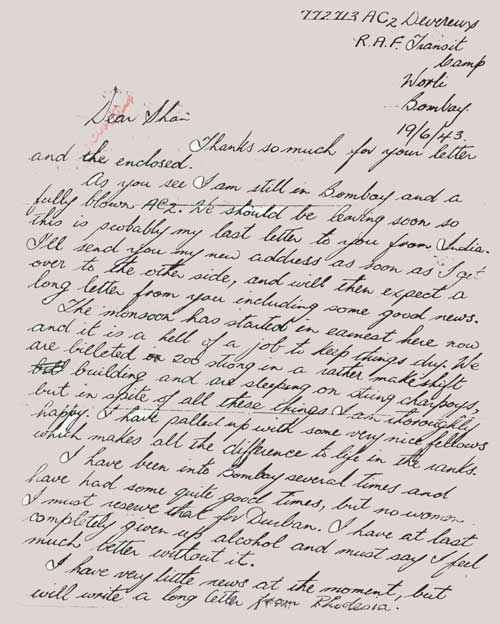 772713 AC2 Devereux
R.A.F. Transit
Camp
Worli
Bombay.
19/6/43.
Dear Shan
Thanks so much for your letter
and the enclosed.
As you see I am still in Bombay and a
fully blown AC2. We should be leaving soon so
this is probably my last letter to you from India.
I'll send you my new address as soon as I get
over to the other side, and will then expect a
long letter from you including some good news.
The monsoon has started in earnest here now
and it is a hell of a job to keep things dry. We
are billeted 200 strong in a rather makeshift
building and are sleeping on strung charpoys,
but in spite of all these things I am thoroughly
happy. I have palled up with some very nice fellows
which makes all the difference to life in the ranks.
I have been into Bombay several times and
have had some quite good times, but no women.
I must reserve that for Durban. I have at last
completely given up alcohol and must say I feel
much better without it.
I have very little news at the moment, but
will write a long letter from Rhodesia.